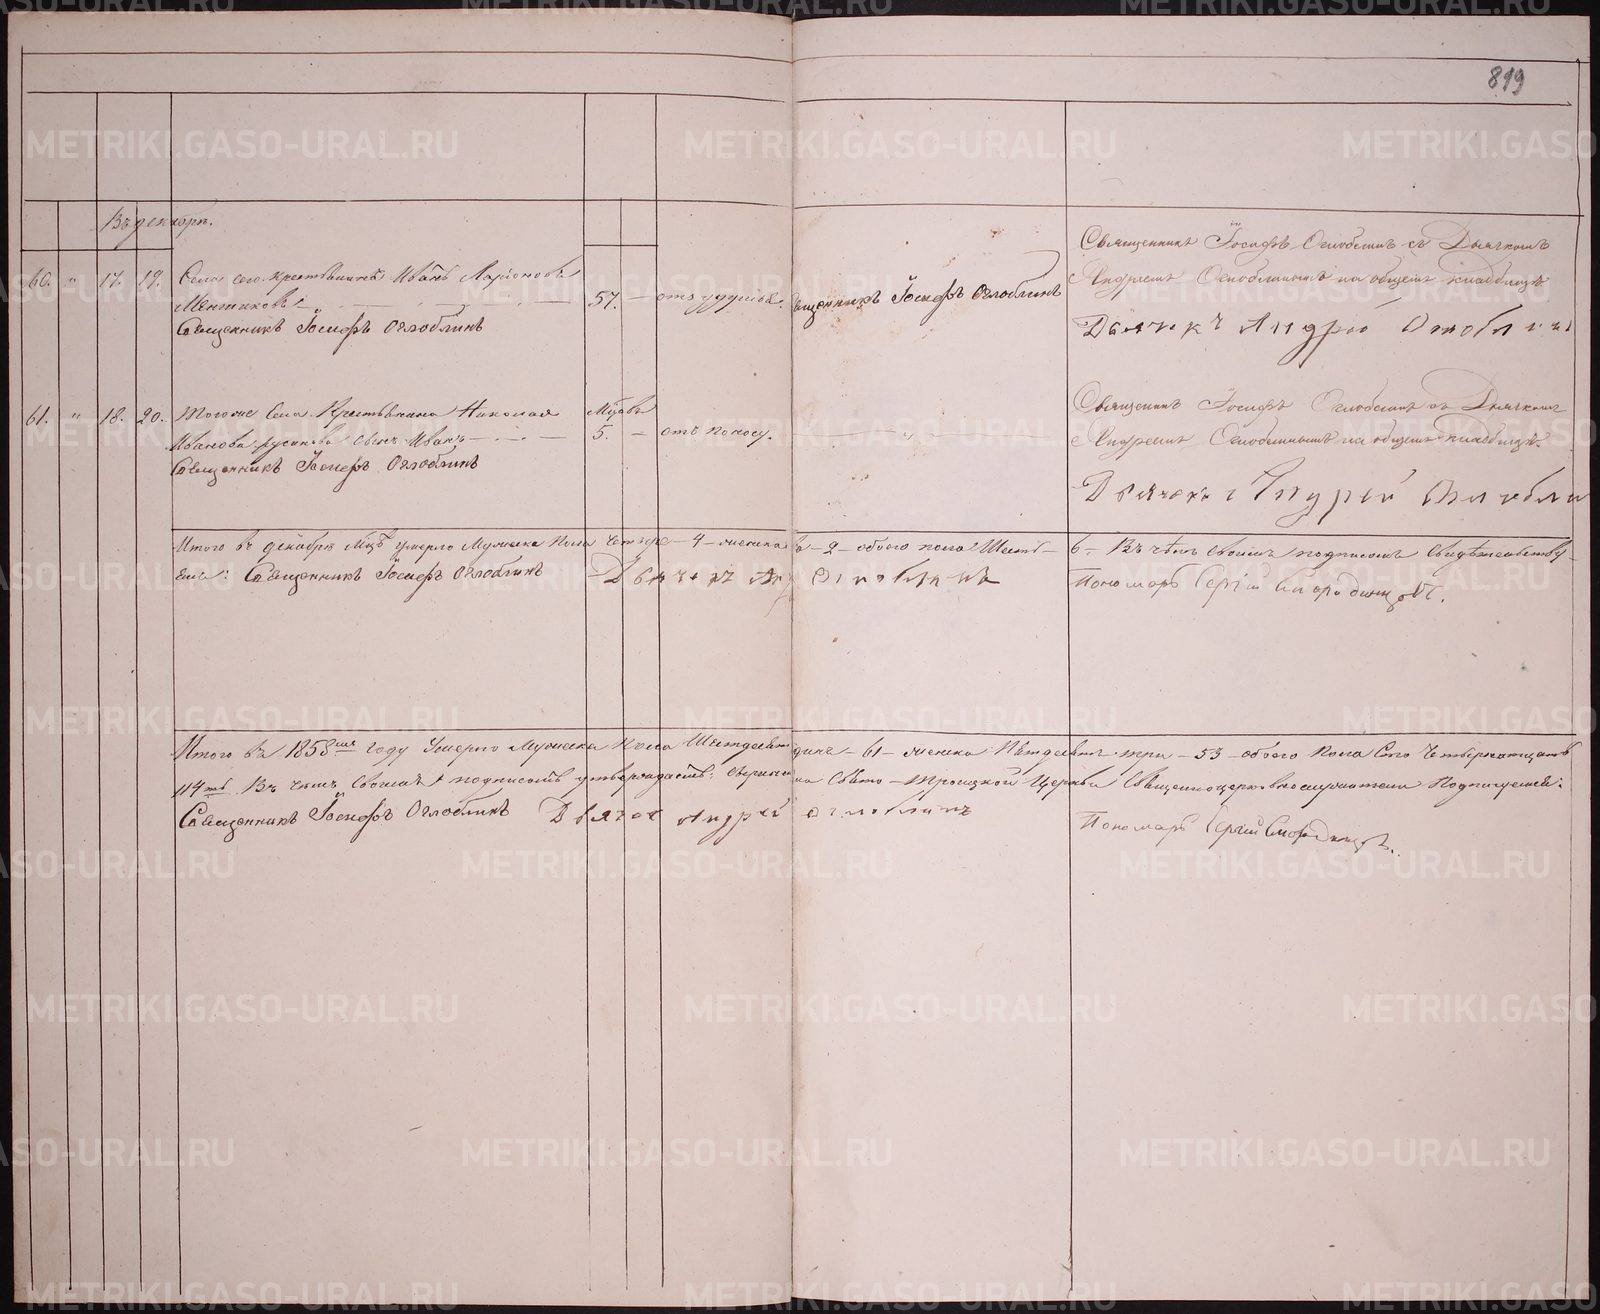 819
Въ декабрѣ.
60. " 17. 19. Села сего крестьянинъ Иванъ Ларіоновъ
Ментиковъ
57. — отъ удушья.
Священникъ Іосифъ Оглоблинъ
Священникъ Іосифъ Оглоблинъ
Священникъ Іосифъ Оглоблинъ съ Дьячкомъ
Андреемъ Оглоблинымъ на общемъ кладбищѣ
Дьячекъ Андрей Оглоблинъ
61. " 18. 20. Тогоже Села Крестьянина Николая
Иванова сынъ Иванъ
Мѣсяцъ
5. — отъ поносу.
Священникъ Іосифъ Оглоблинъ
Священникъ Іосифъ Оглоблинъ съ Дьячкомъ
Андреемъ Оглоблинымъ на общемъ кладбищѣ.
Дьячекъ Андрей Оглоблин
Итого въ декабрѣ мцѣ умерло Мужеска Пола четыре — 4 — женска — 2 — обоего пола Шесть — 6 — Въ чемъ своимъ подписомъ свидѣтельству-
емъ: Священникъ Іосифъ Оглоблинъ Дьячекъ Анд Оглоблинъ Пономарь Сергій Смородинцовъ.
Итого въ 1858мъ году Умерло Мужеска Пола Шестдесятъ одинъ — 61 — женска Пятдесятъ три — 53 — обоего Пола Сто Четырнатцать
114ть Въ чемъ своимъ подписомъ утверждаетъ: Свято — Троицкой Церкви Священноцерковнослужители Подпишемся:
Священникъ Іосифъ Оглоблинъ Дьячек Андрей Оглоблинъ Пономарь Сергій Смородинцовъ.
METRIKI.GASO-URAL.RU